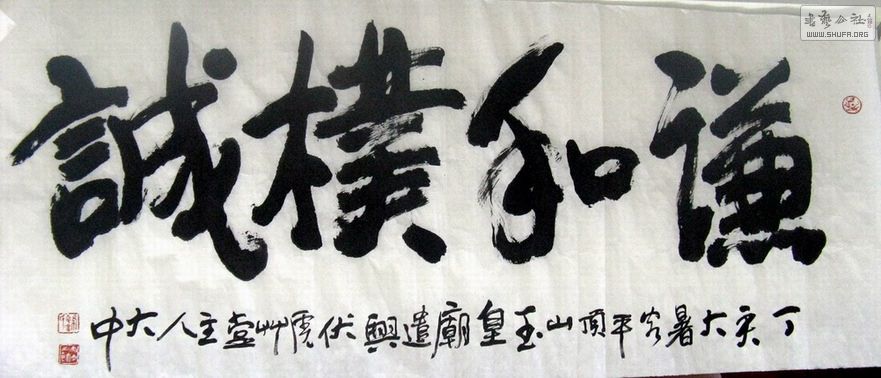 謙和樸誠
丁亥大暑客平頂山玉皇廟遣興伏虎草堂主人大中
书艺公社
WWW.SHUFA.ORG